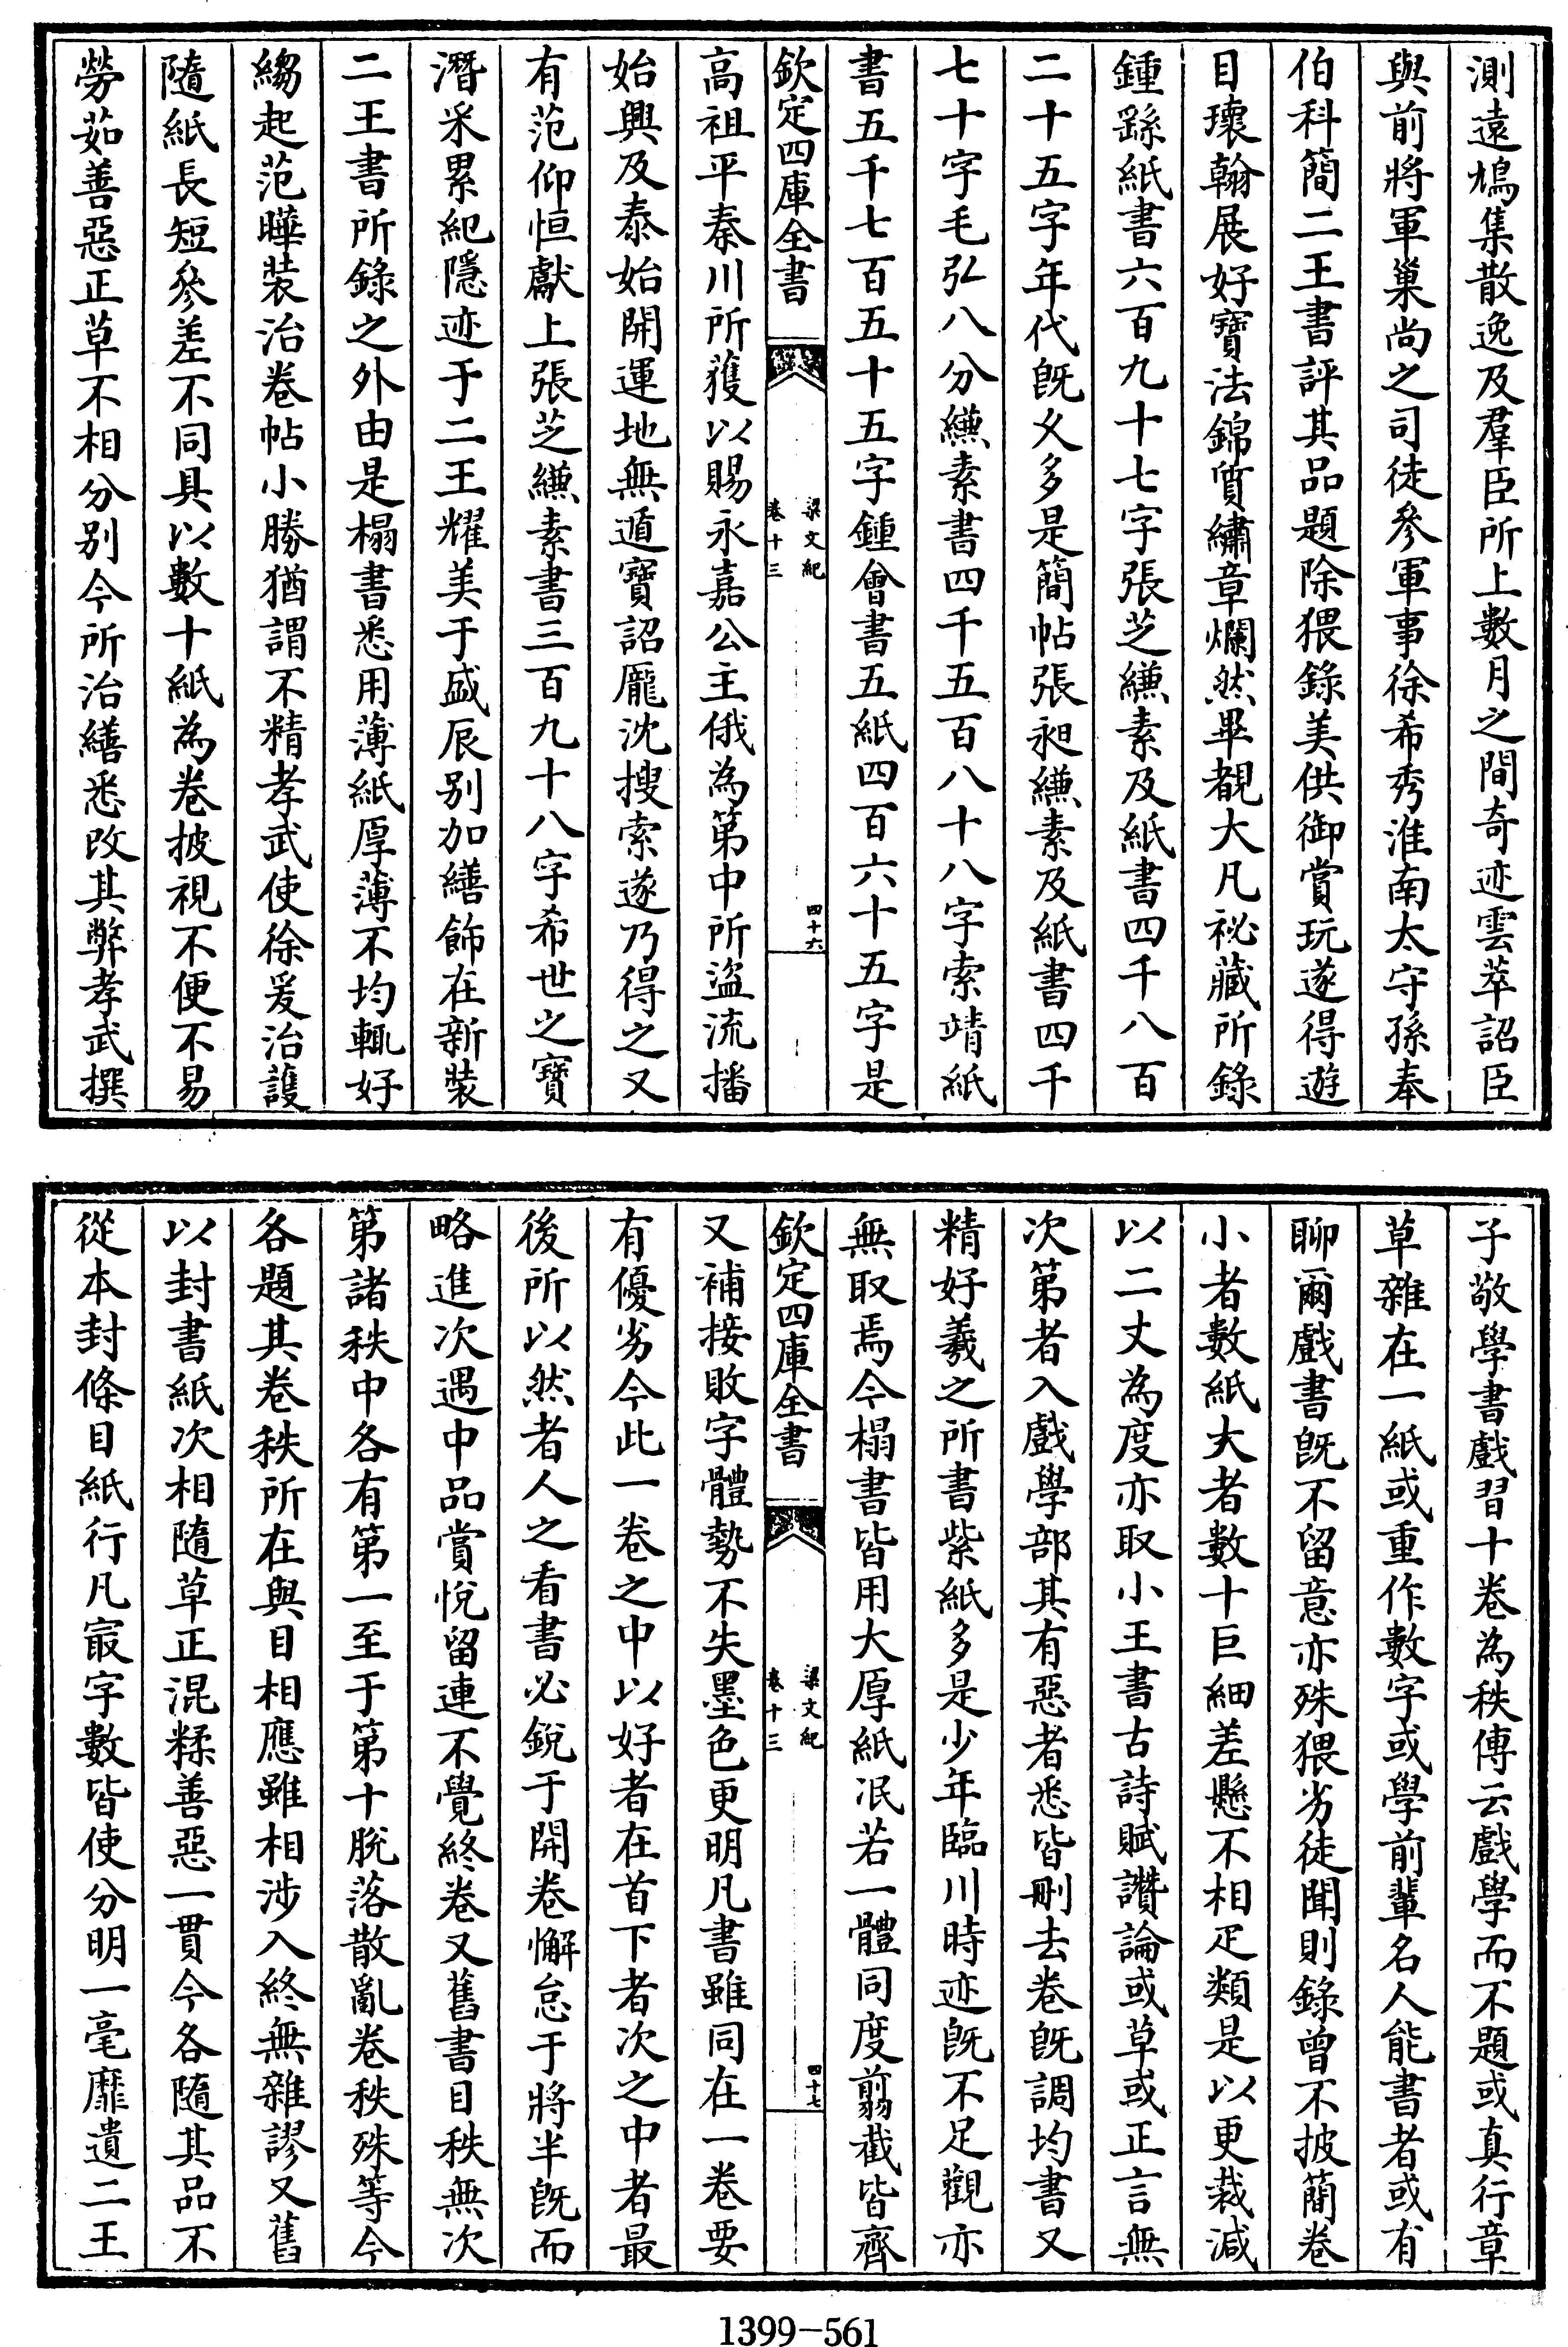 測遠鳩集散逸及羣臣所上數月之間奇迹雲萃詔臣
與前將軍巢尚之司徒參軍事徐希秀淮南太守孫奉
伯科簡二王書評其品題除猥錄美供御賞玩遂得遊
目瓌翰展好寶法錦質繡章爛然畢覩大凡祕藏所錄
鍾繇紙書六百九十七字張芝縑素及紙書四千八百
二十五字年代旣乆多是簡帖張昶縑素及紙書四千
七十字毛弘八分縑素書四千五百八十八字索靖紙
書五千七百五十五字鍾會書五紙四百六十五字是
欽定四庫全書
梁文紀
卷十三
四十六
高祖平秦川所獲以賜永嘉公主俄為第中所盜流播
始興及泰始開運地無遁寶詔龎沈搜索遂乃得之又
有范仰恒獻上張芝縑素書三百九十八字希世之寶
潛采累紀隱迹于二王耀美于盛辰別加繕飾在新裝
二王書所錄之外由是榻書悉用薄紙厚薄不均輒好
縐起范曄裝治卷帖小勝猶謂不精孝武使徐爰治護
隨紙長短參差不同具以數十紙為卷披視不便不易
勞茹善惡正草不相分別今所治繕悉改其弊孝武撰
子敬學書戲習十卷為秩傳云戲學而不題或真行章
草雜在一紙或重作數字或學前輩名人能書者或有
聊爾戲書旣不留意亦殊猥劣徒聞則錄曾不披簡卷
小者數紙大者數十巨細差懸不相疋類是以更裁減
以二丈為度亦取小王書古詩賦讚論或草或正言無
次第者入戲學部其有惡者悉皆刪去卷旣調均書又
精好羲之所書紫紙多是少年臨川時迹旣不足觀亦
無取焉今榻書皆用大厚紙泯若一體同度翦截皆齊
欽定四庫全書
梁文紀
卷十三
四十七
又補接敗字體勢不失墨色更明凡書雖同在一卷要
有優劣今此一卷之中以好者在首下者次之中者最
後所以然者人之看書必銳于開卷懈怠于將半旣而
略進次遇中品賞悅留連不覺終卷又舊書目秩無次
第諸秩中各有第一至于第十脫落散亂卷秩殊等今
各題其卷秩所在與目相應雖相涉入終無雜謬又舊
以封書紙次相隨草正混糅善惡一貫今各隨其品不
從本封條目紙行凡㝡字數皆使分明一毫靡遺二王
1399-561